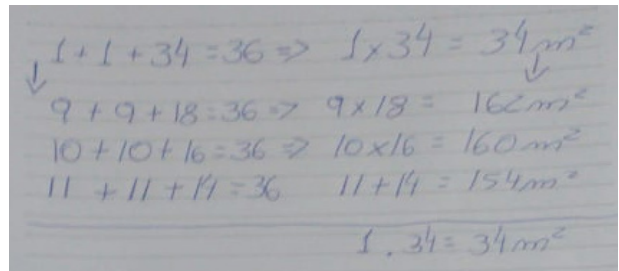 1 + 1 + 34 = 36 => 1 x 34 = 34 m²
9 + 9 + 18 = 36 => 9 x 18 = 162 m²
10 + 10 + 16 = 36 => 10 x 16 = 160 m²
11 + 11 + 14 = 36 11 + 14 = 154 m²
1 . 34 = 34 m²